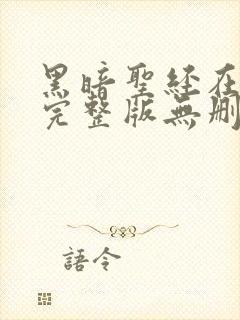 黑暗聖經在
完整版無刪
語令